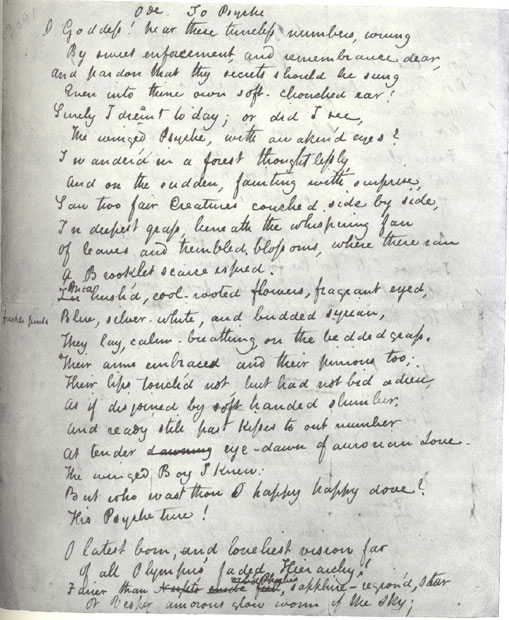 Ode To Psyche
O Goddess! hear these tuneless numbers, wrung
By sweet enforcement, and remembrance dear,
And pardon that thy secrets should be sung
Even into thine own soft-chonched ear!
Surely I dreamt to day; or did I see,
The winged Psyche, with awaken'd eyes?
I wander'd in a forest thoughtlessly,
And on the sudden, fainting with surprise,
Saw two fair Creatures couched side by side,
In deepest grass, beneath the whispering fan
Of leaves and trembled blossoms, where there ran
A Brooklet scarce espied.
Mid
In hush'd, cool-rooted flowers, fragrant eyed,
Blue, silver-white, and budded syrian,
They lay, calm-breathing on the bedded grass.
Their arms embraced and their pinions too;
Their lips touch'd not but had not bid adieu,
As if disjoined by soft handed slumber,
And ready still past kisses to out number
At tender dawning eye-dawn of aurorian Love.
The winged Boy I knew:
But who wast thou O happy happy dove?
His Psyche true!
O latest born, and loveliest vision far
Of all Olympus' faded Hierarchy!
Fairer than Phoebe's sapphire-region'd star
Or Vesper amorous glow worm of the sky;